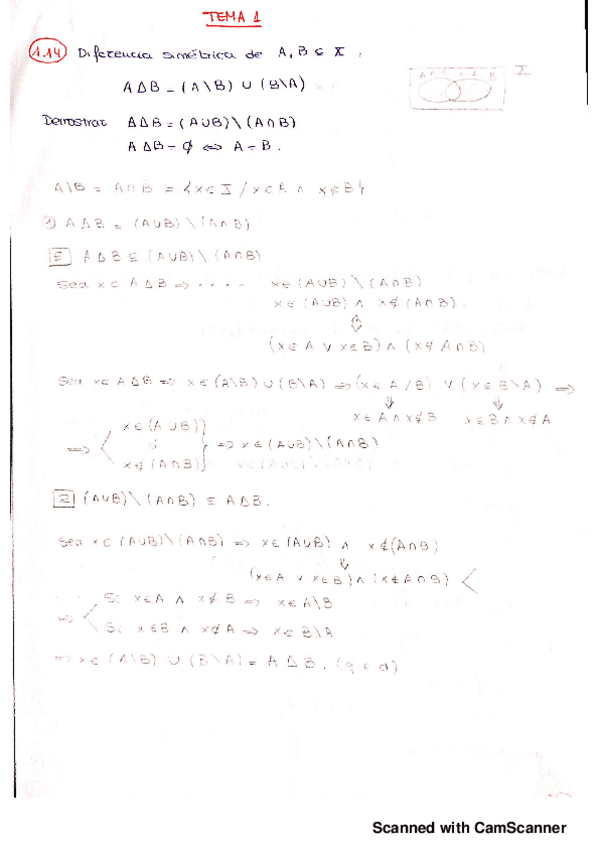 TEMA 1
1.14 Diferencia simétrica de A, B ⊆ X.
A Δ B = (A\B) ∪ (B\A)
X
Demostrar A Δ B = (A∪B)\(A∩B)
A Δ B = ∅ ⇔ A = B.
A\B = A∩B = {x∈X / x∈A ∧ x∉B}
1) A Δ B = (A∪B)\(A∩B)
⊆ A Δ B ⊆ (A∪B)\(A∩B)
Sea x∈ A Δ B ⇒ .... x∈(A∪B)\(A∩B)
x∈(A∪B) ∧ x∉(A∩B).
⇕
(x∈A ∨ x∈B) ∧ (x∉A∩B)
Sea x∈ A Δ B ⇒ x∈(A\B)∪(B\A) ⇒ (x∈A/B) ∨ (x∈B\A) ⇒
⇓ ⇓
x∈A ∧ x∉B x∈B ∧ x∉A
⇒ x∈(A∪B)
x∉(A∩B) } ⇒ x∈(A∪B)\(A∩B)
2 (A∪B)\(A∩B) ⊆ A Δ B.
Sea x∈(A∪B)\(A∩B) ⇒ x∈(A∪B) ∧ x∉(A∩B)
⇓
(x∈A ∨ x∈B) ∧ (x∉A∩B) <
Si x∈A ∧ x∉B ⇒ x∈A\B
⇒ Si x∈B ∧ x∉A ⇒ x∈B\A
⇒ x∈(A\B) ∪ (B\A) = A Δ B. (q e d)
Scanned with CamScanner